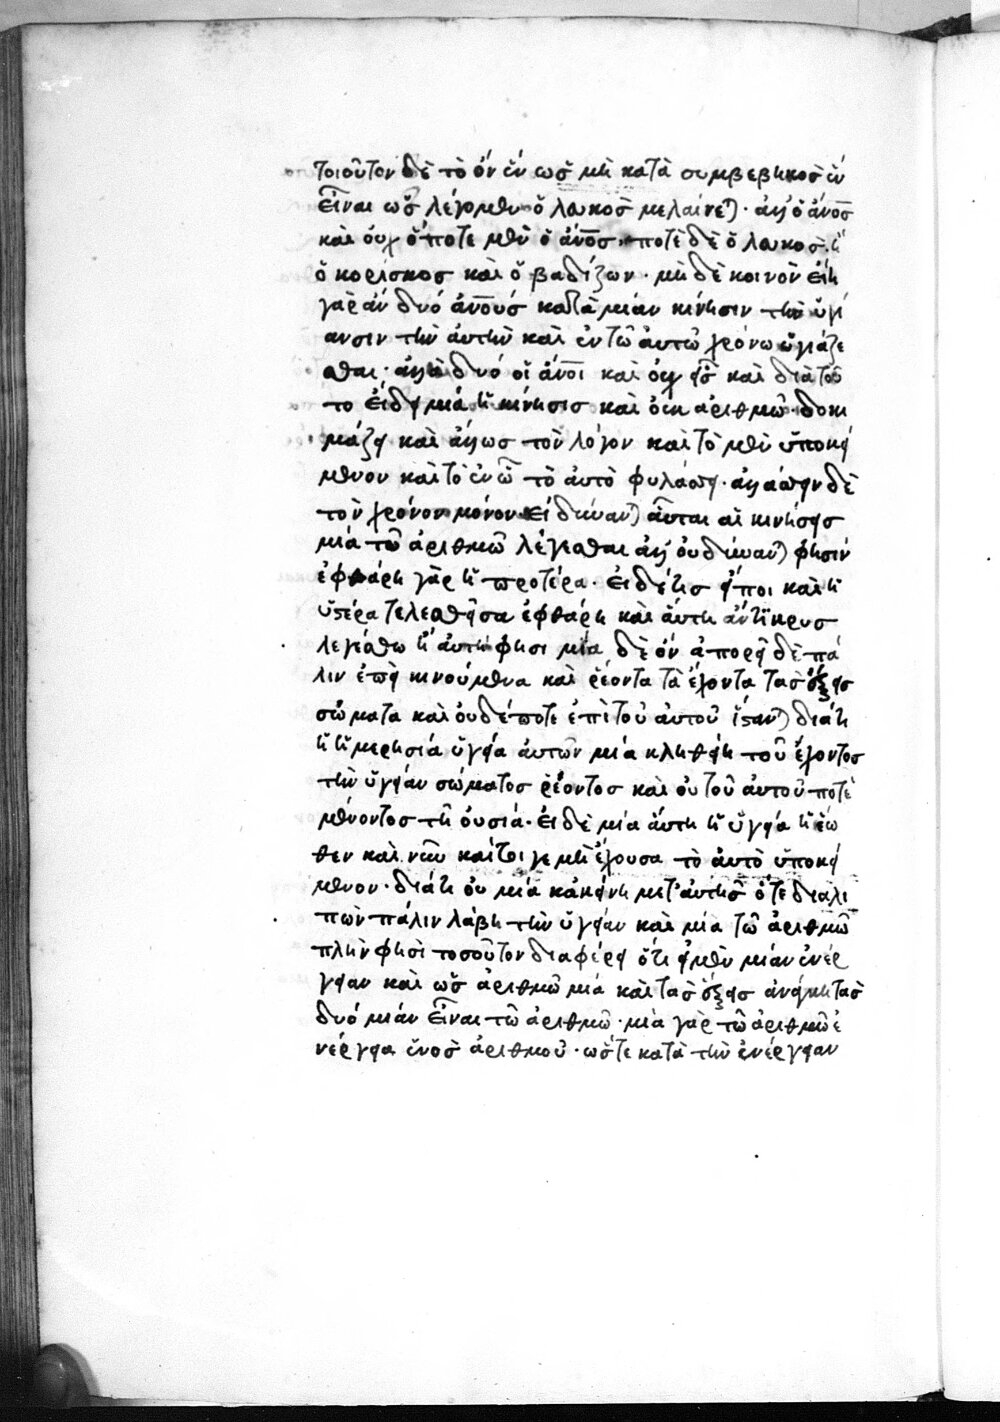 τοιοῦτον δὲ τὸ ὂν ἓν ὡς μὴ κατὰ συμβεβηκὸς ἓν
εἶναι ὡς λέγομεν ὁ λευκὸς μελαίνετ(αι). ἀλλ' ὁ ἄν(θρωπ)ος
καὶ οὐχ ὁποτὲ μὲν ὁ ἄν(θρωπ)ος, ποτὲ δὲ ὁ λευκὸς ἢ
ὁ κορίσκος καὶ ὁ βαδίζων. μὴ δὲ κοινὸν εἴη
γὰρ ἂν δύο ἀν(θρώπ)ους κατὰ μίαν κίνησιν τὴν ὑγί
ανσιν τὴν αὐτὴν καὶ ἐν τῶ αὐτῶ χρόνω ὑγιάζε
σθαι. ἀλλὰ δύο οἱ ἄν(θρωπ)οι καὶ οὐχ εἷς καὶ διὰ τοῦ
το εἴδει μία ἡ κίνησις καὶ οὐκ ἀριθμῶ. δοκι
μάζει καὶ ἄλλως τὸν λόγον καὶ τὸ μὲν ὑποκεί
μενον καὶ τὸ ἐν ὧ τὸ αὐτὸ φυλάσσει. ἀλλάσσειν δὲ
τὸν χρόνον μόνον εἰ δύναντ(αι) αὗται αἱ κινήσεις
μία τῶ ἀριθμῶ λέγεσθαι ἀλλ' οὐ δύναντ(αι) φησίν
ἐφθάρη γὰρ ἡ προτέρα. εἰ δέ τις εἴποι καὶ ἡ
ὑστέρα τελεσθεῖσα ἐφθάρη καὶ αὕτη ἄντικρυς
λεγέσθω ἡ αὐτή φησι μία δὲ ὄν ἀπορεῖ δὲ πά
λιν ἐπεὶ κινούμενα καὶ ῥέοντα τὰ ἔχοντα τὰς ἕξεις
σώματα καὶ οὐδέποτε ἐπὶ τοῦ αὐτοῦ ἵσταντ(αι) διάτι
ἡ ἡμερησία ὑγεία αὐτῶν μία κληθείη τοῦ ἔχοντος
τὴν ὑγείαν σώματος ῥέοντος καὶ οὐ τοῦ αὐτοῦ ποτὲ
μένοντος τῆ οὐσία. εἰ δὲ μία αὕτη ἡ ὑγεία ἡ ἕω
θεν καὶ νῦν καίτοι γε μὴ ἔχουσα τὸ αὐτὸ ὑποκεί
μενον. διάτι οὐ μία κἀκείνη μετ' αὐτῆς ὅτε διαλι
πὼν πάλιν λάβη τὴν ὑγείαν καὶ μία τῶ ἀριθμῶ
πλήν φησὶ τοσοῦτον διαφέρει ὅτι εἰ μὲν μίαν ἐνέρ
γειαν καὶ ὡς ἀριθμῶ μία καὶ τὰς ἕξεις ἀνάγκη τὰς
δύο μίαν εἶναι τῶ ἀριθμῶ. μία γὰρ τῶ ἀριθμῶ ἐ
νέργεια ἑνὸς ἀριθμοῦ. ὥστε κατὰ τὴν ἐνέργειαν